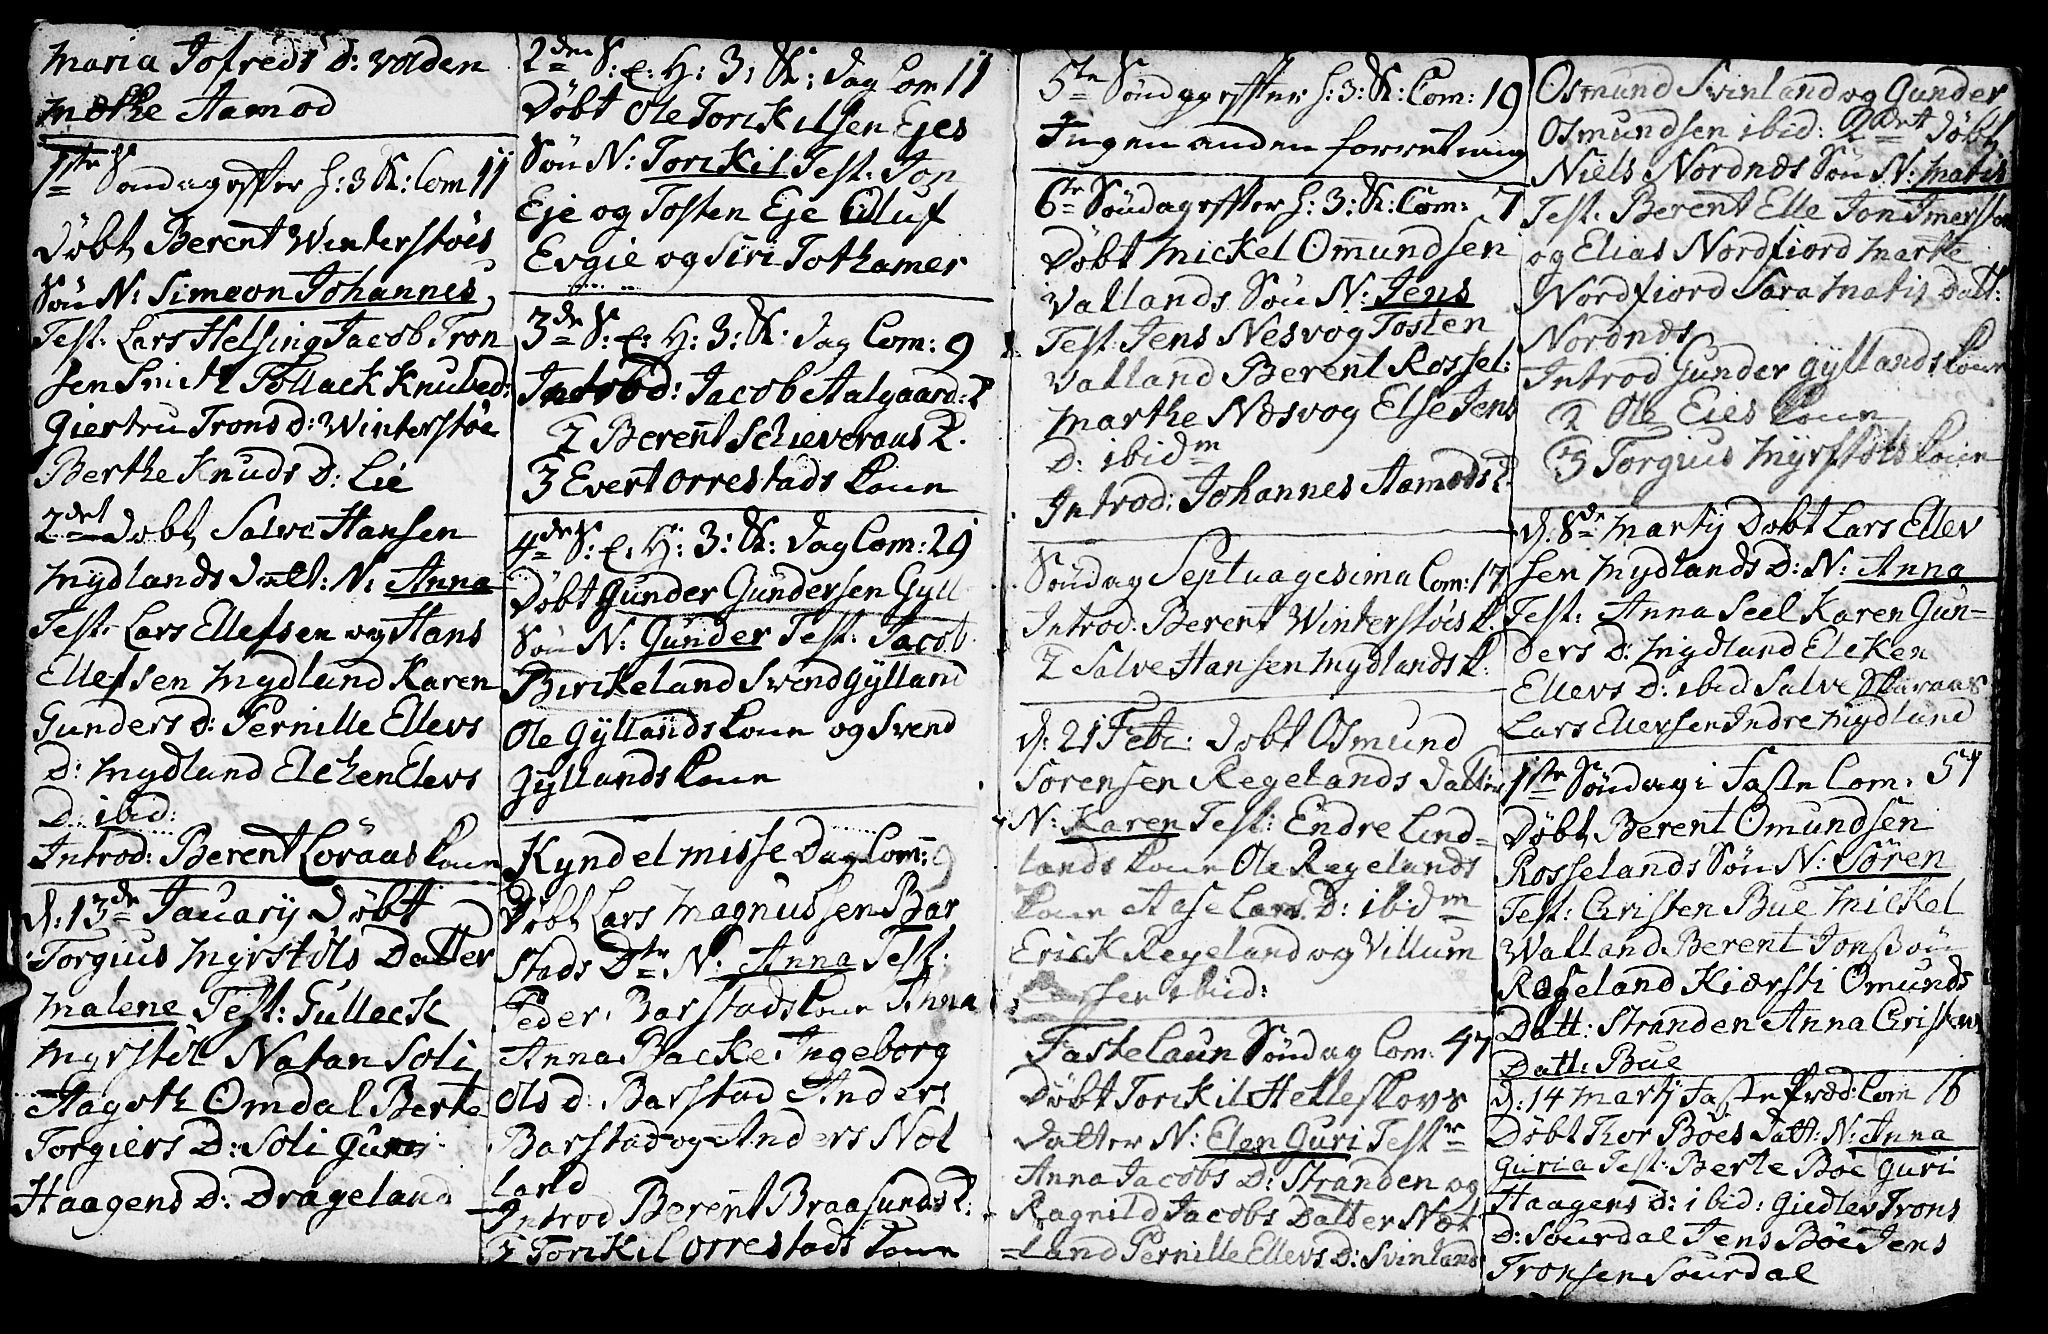 Maria Jofreds D: Volden
Mekke Aamod
1ste Søndag effter h: 3 K: Com 11
Døbt Berent Winterstøes
Søn N: Simeon Johannes
Test: Lars Helsing Jacob Tron
sen Smith Pollack Knubed:
Giertru Trons D: Winterstøe
Berthe Knuds D: Lie
2det Døbt Salve Hansen
Mydlands Datt: N: Anna
Test: Lars Ellefsen og Hans
Ellefsen Mydland Karen
Gunders D: Pernille Ellevs
D: Mydland Elchen Elevs
D: ibid:
Introd: Berent Løraas Kone
d: 13de Januarij Døbt
Torgius Myrstøls Datter
Malene Test: Gulleck
Myrstøl Natan Soli
Aagoth Omdal Berte
Torgiers D: Soli
Haagens D: Drageland
2den S: e: H: 3: K: Dag Com 11
Døbt Ole Torckilsen Ejes
Søn N: Torckil Test: Jon
Eje og Tosten Eje Eiluf
Evgie og Siri Tothamer
3de S: e: H: 3: K: Dag Com: 9
Introd: Jacob Aalgaard: K
2 Berent Schieveraas K.
3 Evert Orrestads Kone
4de S: e: H: 3: K: Dag Com: 29
Døbt Gunder Gundersen Gyll
Søn N: Gunder Test: Jacob
Birckeland Svend Gylland
Ole Gyllands Kone og Svend
Gyllands Kone
Kyndelmisse Dag Com: 9
Døbt Lars Magnussen Bar
stads Dtr. N: Anna Test:
Peder Barstads Kone Anna
Anna Backe Ingeborg
Ols d: Barstad Anders
Barstad og Anders Næt
land
Introd Berent Braasunds K:
2 Torckil Orrestads Kone
5te Søndag effter h: 3: K: Com: 19
Ingen anden forretning
6te Søndag effter h: 3: K: Com: 7
Døbt Mickel Omundsen
Vatlands Søn N: Jens
Test: Jens Nesvog Tosten
Vatland Berent Rossel:
Marthe Nesvog Else Jens
D: ibidm
Introd: Johannes Aamods K
Søndag Septuagesima Com: 17
Introd: Berent Winterstøes K:
2 Salve Hansen Mydlands K:
d: 21 Febr: Døbt Osmund
Sørensen Regelands Datter
N: Karen Test: Endre Lind-
lands Kone Ole Regelands
Kone Aase Lars D: ibidm
Erick Regeland og Villum
ibid:
Fastelaun Søndag Com: 47
Døbt Torckil Helleskovs
Datter N: Elen Guri Testre
Anna Jacobs D: Stranden og
Ragnild Jacobs Datter Næt
=land Pernille Ellevs D: Svinland
Osmund Svinland og Gunder
Osmundsen ibid: 2det Døbt
Niels Nordnes Søn N: Matis
Test: Berent Elle Jon Imerston
og Elias Nordfiord Marthe
Nordfiord Sara Matis Datt:
Nordnes
Introd Gunder Gyllands Kone
2 Ole Eies Kone
og 3 Torgius Myrstøls Kone
d. 8de Martij Døbt Lars Ellev
sen Mydlands D: N: Anna
Test: Anna Seel Karen Gun=
ders D: Mydland Elcken
Ellevs D: ibid Salve Skaraas
Lars Ellevsen Indre Mydland
1ste Søndag i Faste Com: 57
Døbt Berent Omundsen
Rosselands Søn N: Søren
Test: Christen Bue Mickel
Watland Berent Jonssøn
Rageland Kiersti Omunds
Datt: Stranden Anna Christens
Datt: Bue
d: 14 Martij Faste Præd: Com 16
Døbt Thor Böes Datt: N: Anna
Guria Test: Berte Böe Guri
Haagens D: ibid: Giedlev Trons
D: Sourdal Jens Böe Jens
Tronsen Sourdal